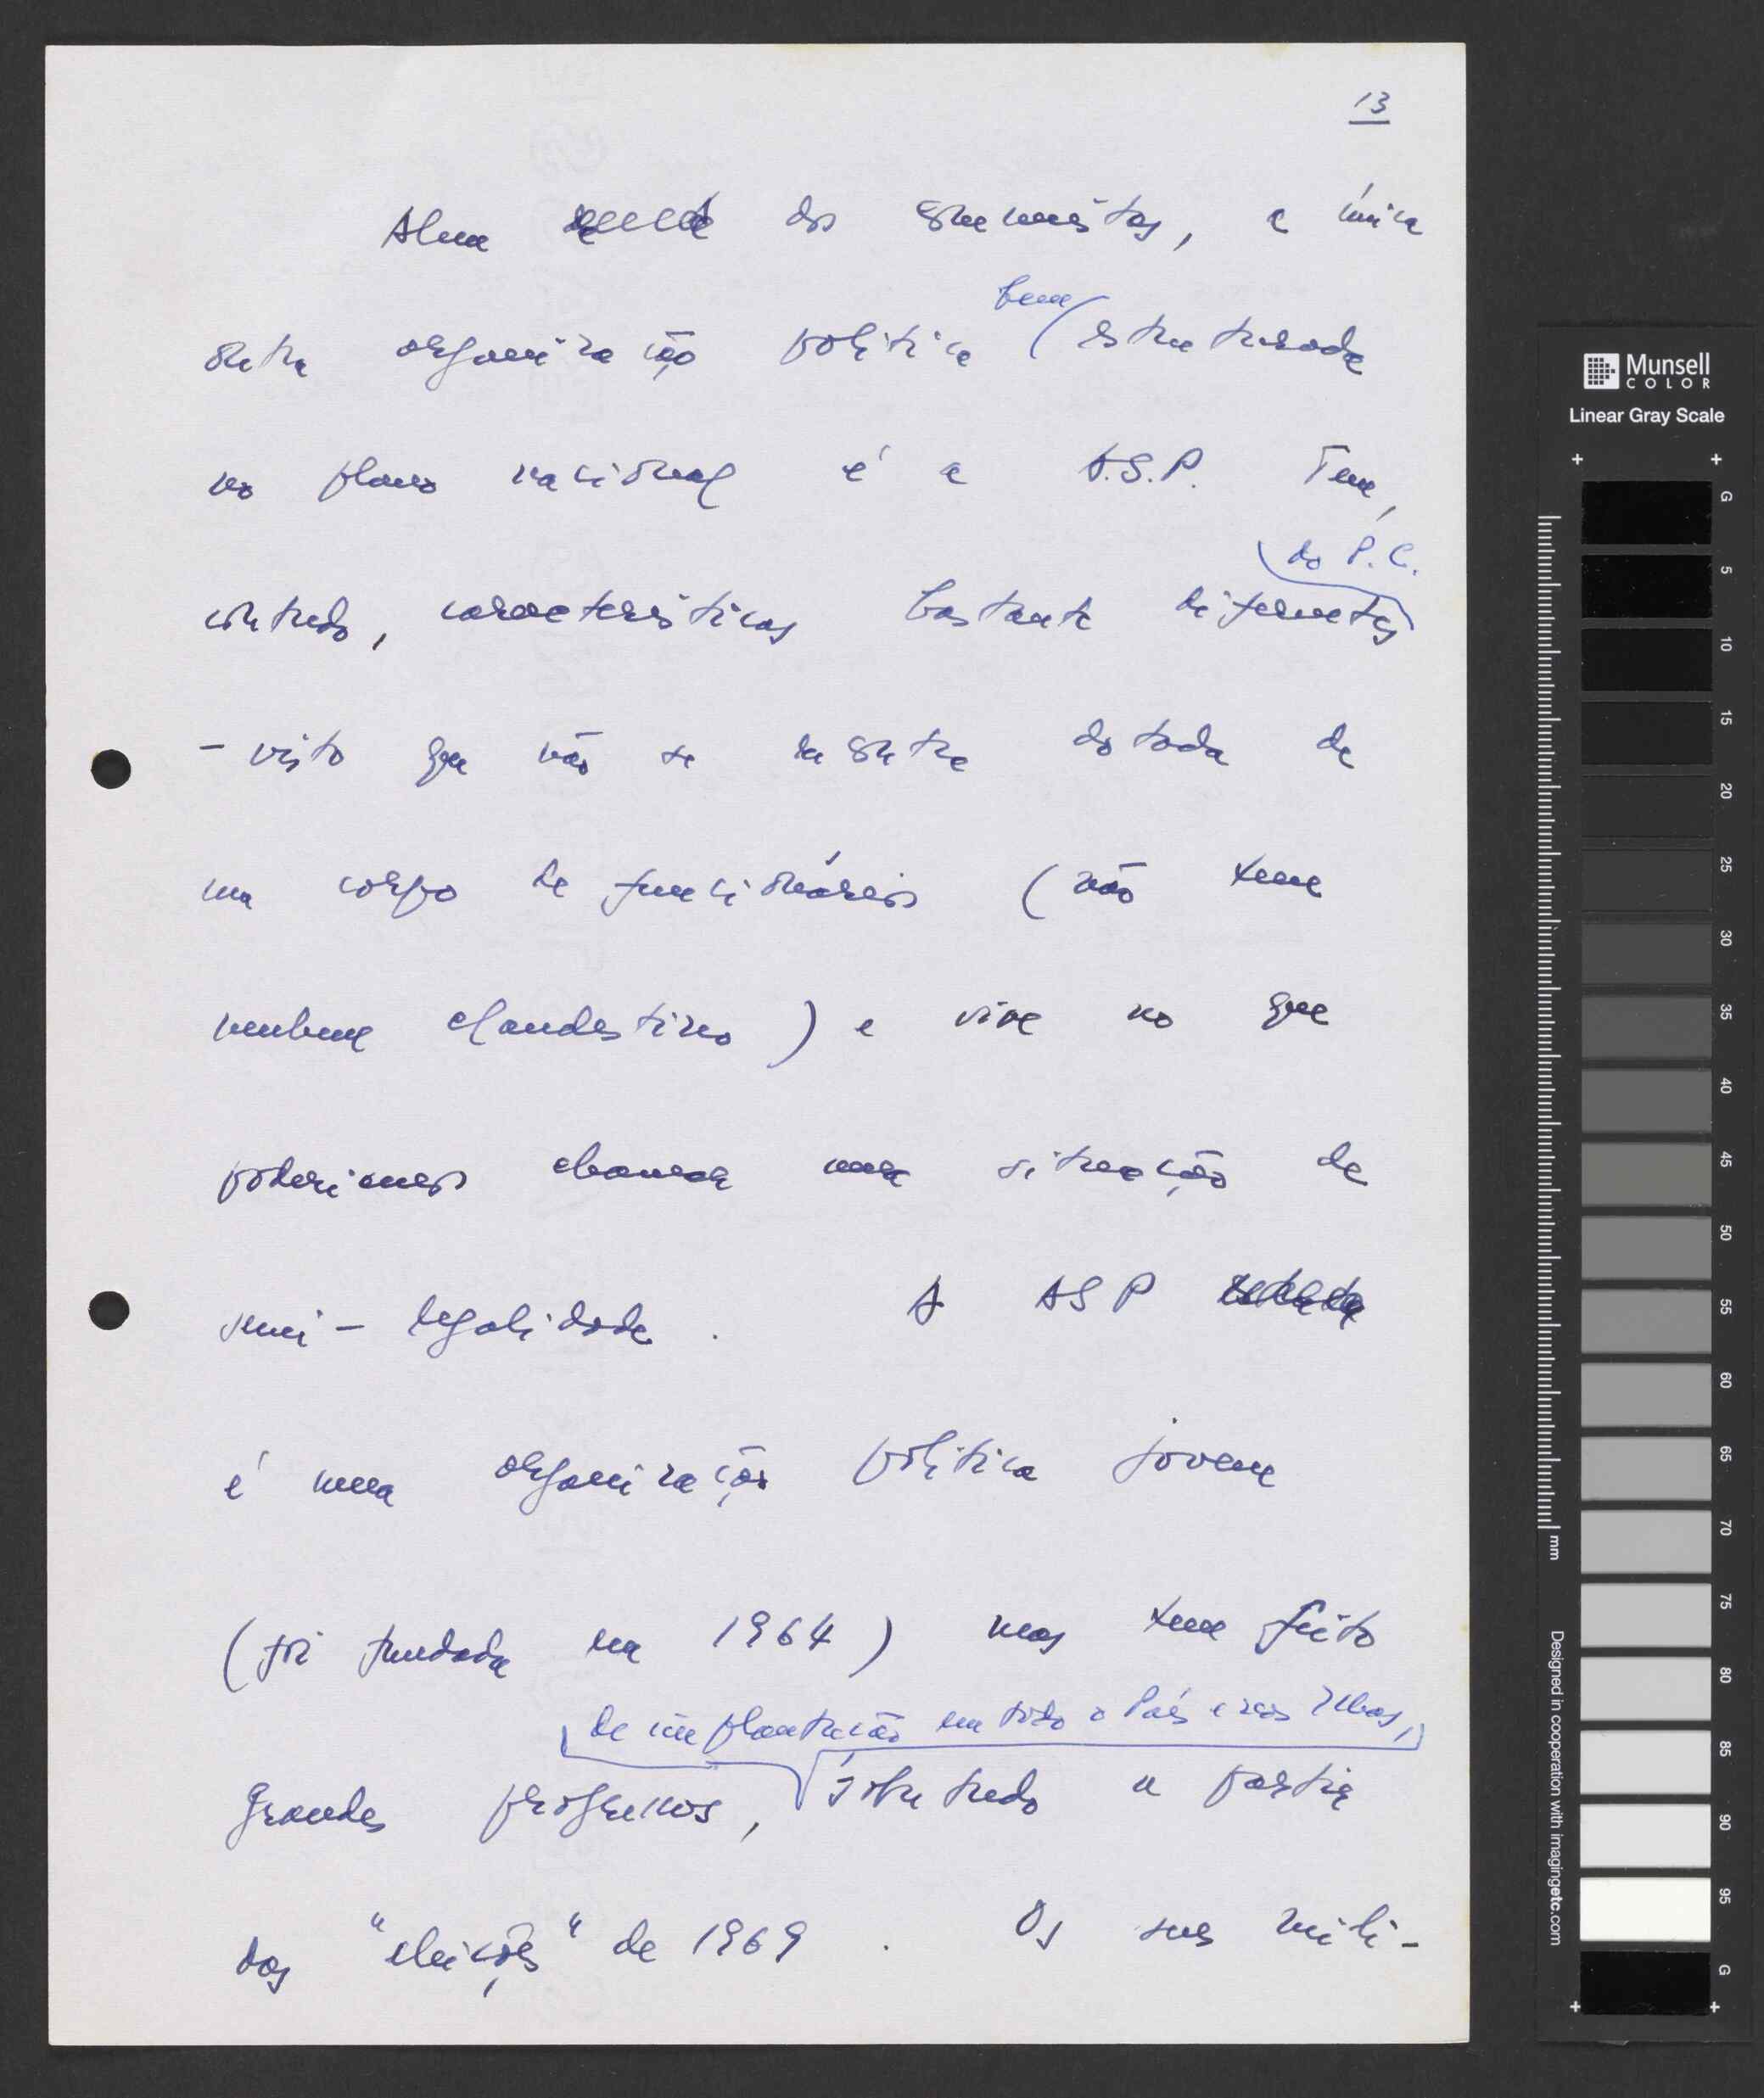 13
Além dos comunistas, a única
outra organização política bem estruturada
no plano nacional é a A.S.P. Tem,
contudo, características bastante diferentes do P.C.
- visto que não se encontra dotada de
um corpo de funcionários (não tem
nenhum clandestino) e vive no que
poderiamos chamar uma situação de
semi-legalidade. A ASP
é uma organização política jovem
(foi fundada em 1964) mas tem feito
de implantação em todo o País e nas Ilhas,
grandes progressos, sobretudo a partir
das "eleições" de 1969. Os seus mili-
Munsell
COLOR
Linear Gray Scale
G
5
10
15
20
25
30
35
40
45
50
55
60
65
70
75
80
85
90
95
G
mm
Designed in cooperation with imagingetc.com